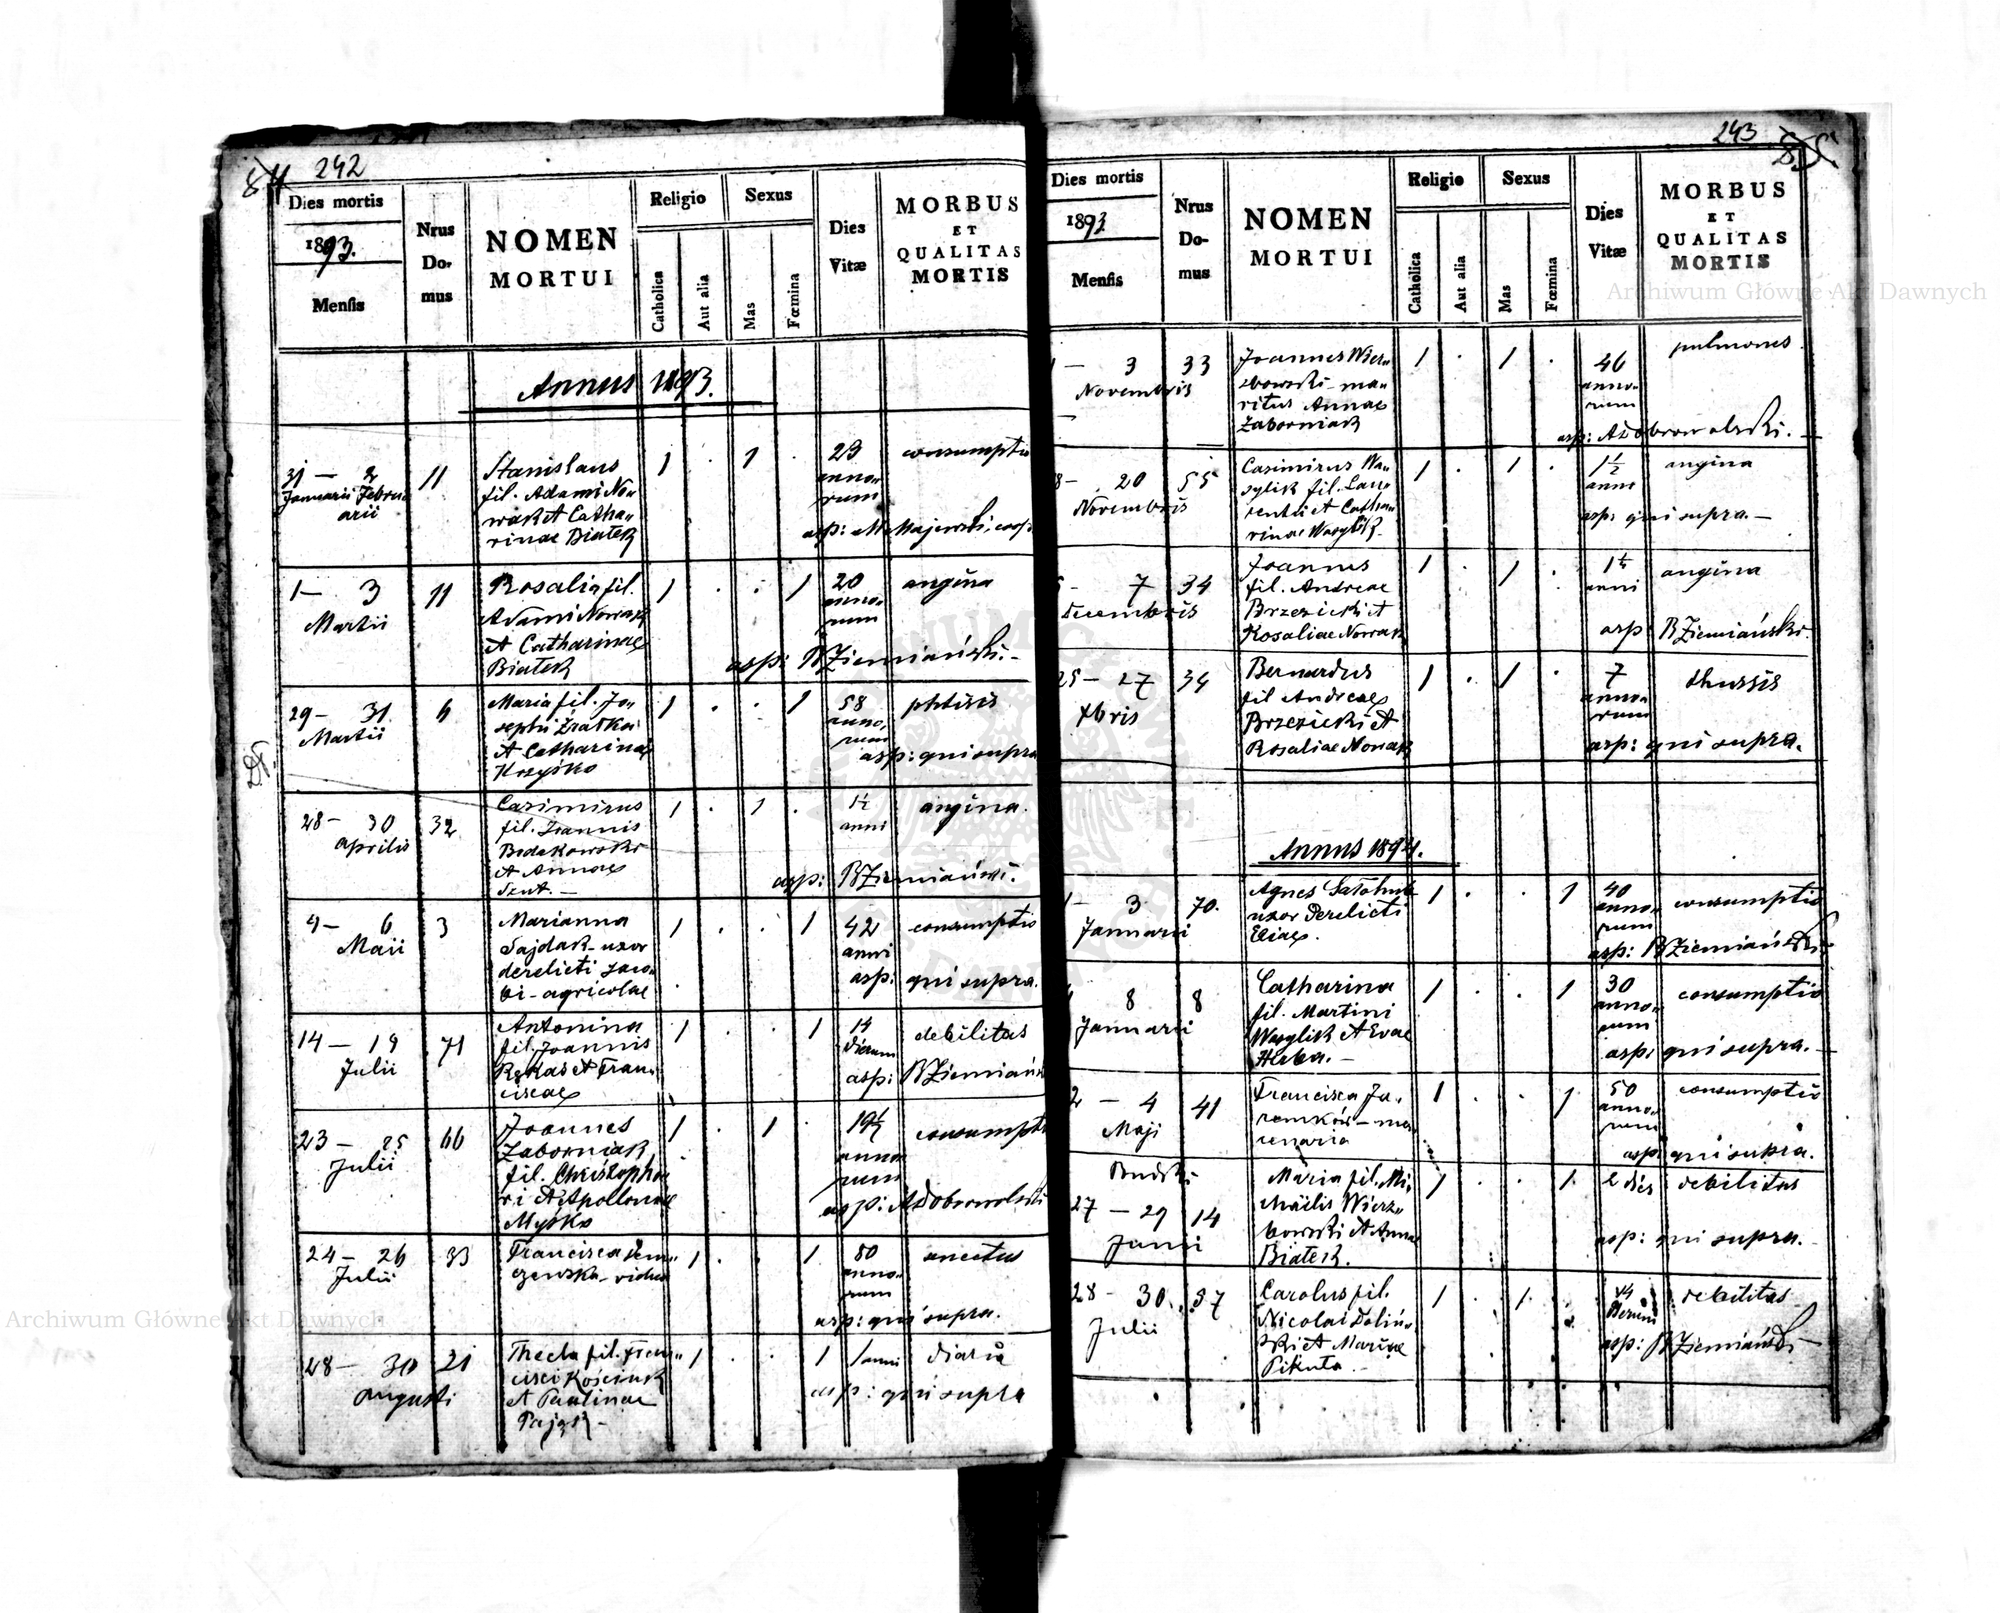 84 242
Dies mortis
1893.
Mensis
Nrus
Do-
mus
NOMEN
MORTUI
Religio
Catholica
Aut alia
Sexus
Mas
Fœmina
Dies
Vitæ
MORBUS
ET
QUALITAS
MORTIS
Annus 1893.
31 — 2
Januarii Febru
arii
11
Stanislaus
fil. Adami No-
wak et Catha-
rinae Białek
1 . 1 .
23
anno-
rum
consumptio
asp: M Majewski coop.
1 — 3
Martii
11
Rosalia fil.
Adami Nowak
et Catharinae
Białek
1 . . 1
20
anno-
rum
angina
asp: B Ziemiański.
29 — 31
Martii
6
Maria fil. Jo-
sephi
et Catharinae
1 . . 1
58
anno-
rum
phtisis
asp: qui supra
28 — 30
Aprilis
32
Casimirus
fil. Joannis
et Annae
1 . 1 .
1½
anni
angina.
asp: B Ziemiański.
4 — 6
Maii
3
Marianna
Sajdak uxor
derelicti Jaco-
bi agricolae
1 . . 1
42
anni
consumptio
asp: qui supra.
14 — 19
Julii
71
Antonina
fil. Joannis
Rękas et Fran-
ciscae
1 . . 1
14
dierum
debilitas
asp: B Ziemiański
23 — 25
Julii
66
Joannes
Zaborniak
fil. Christopho-
ri et Apolloniae
Myśko
1 . 1 .
19½
anno
rum
consumptio
asp: A Dobrowolski
24 — 26
Julii
33
Francisca
vidua
1 . . 1
80
anno-
rum
asp: qui supra.
28 — 30
Augusti
21
Thecla fil. Fran-
cisci Kościuk
et Paulinae
Pająk
1 . . 1
1 anni
asp: qui supra
243 85
Dies mortis
1893
Mensis
Nrus
Do-
mus
NOMEN
MORTUI
Religio
Catholica
Aut alia
Sexus
Mas
Fœmina
Dies
Vitæ
MORBUS
ET
QUALITAS
MORTIS
1 — 3
Novembris
33
Joannes Wierz-
bowski ma-
ritus Annae
Zaborniak
1 . 1 .
46
anno-
rum
pulmones
asp: A Dobrowolski.
8 — 20
Novembris
55
Casimirus Wa-
sylik fil. Lau-
rentii et Catha-
rinae Wasylik
1 . 1 .
1½
anni
angina
asp: qui supra. —
7
Decembris
34
Joannes
fil. Andreae
Brzezicki et
Rosaliae Nowak
1 . 1 .
1½
anni
angina
asp B Ziemiański.
25 — 27
Xbris
34
Bernardus
fil Andreae
Brzezicki et
Rosaliae Nowak
1 . 1 .
7
anno-
rum
thussis
asp: qui supra.
Annus 1894.
1 3
Januarii
70.
Agnes
uxor derelicti
Eliae.
1 . . 1
40
anno-
rum
consumptio
asp: B Ziemiański
8
Januarii
8
Catharina
fil. Martini
Wasylik et Evae
Hebla. —
1 . . 1
30
anno-
rum
consumptio
asp: qui supra. —
2 — 4
Maji
41
Francisca Ja-
1 . . 1
50
anno-
rum
consumptio
asp qui supra.
27 — 29
Junii
14
Maria fil. Mi-
chaëlis Wierz-
bowski et Annae
Białek.
1 . . 1.
2 dies
debilitas
asp: qui supra.
28 — 30.
Julii
57
Carolus fil.
Nicolai Doliń-
ski et Mariae
Pikuta. —
1 . 1. .
14
dierum
debilitas
asp: B Ziemiański
Archiwum Główne Akt Dawnych
Archiwum Główne Akt Dawnych